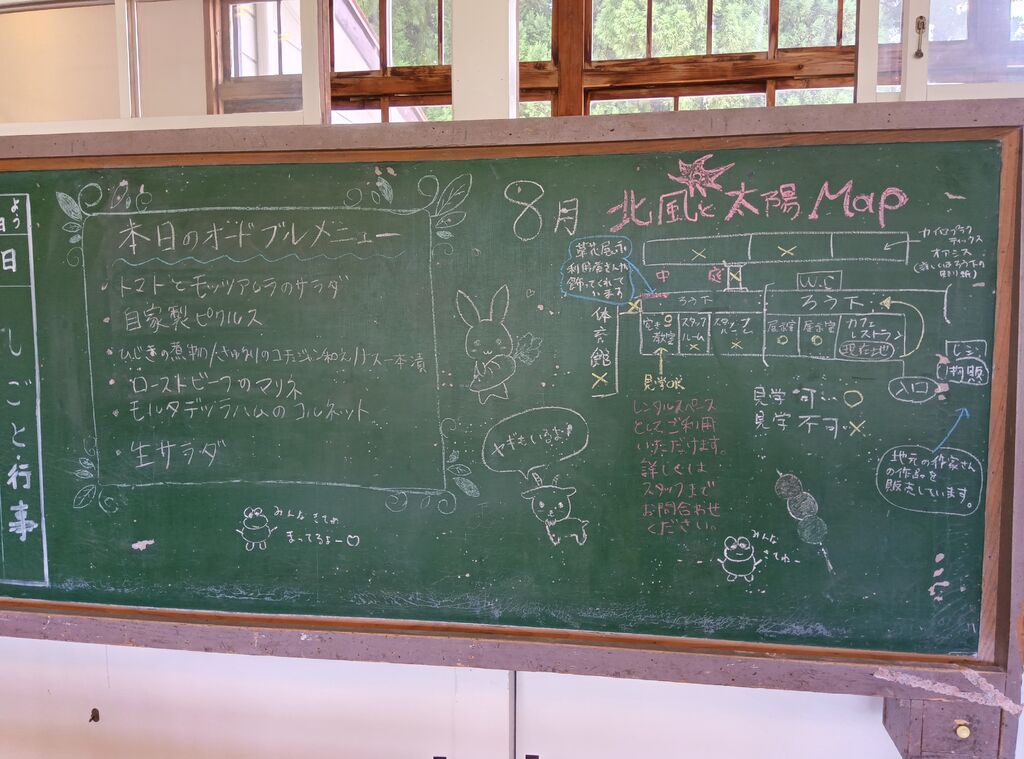 よう
日
日
しごと・行事
本日のオードブルメニュー
・トマトとモッツアレラのサラダ
・自家製ピクルス
・ひじきの煮物/きゅうりのコチュジャン和え/ナス一本漬
・ローストビーフのマリネ
・モルタデッラハムのコルネット
・生サラダ
みんなきてね
まってるよー♡
ヤギもいるよ♪
8月
北風と太陽 Map
草花展示
利用者さんが
飾ってくれて
います
中
庭
カイロプラク
ティックス
オアシス
W.C
ろう下
ろう下
体育館
空き
教室
スタッフ
ルーム
スタッフ
ルーム
展示室
展示室
カフェ
レストラン
現在地
見学OK
入口
レジ
物販
見学 可…○
見学 不可…×
レンタルスペース
としてご利用
いただけます。
詳しくは
スタッフまで
お問合わせ
ください。
地元の作家さん
の作品を
販売しています。
みんな
きてねー